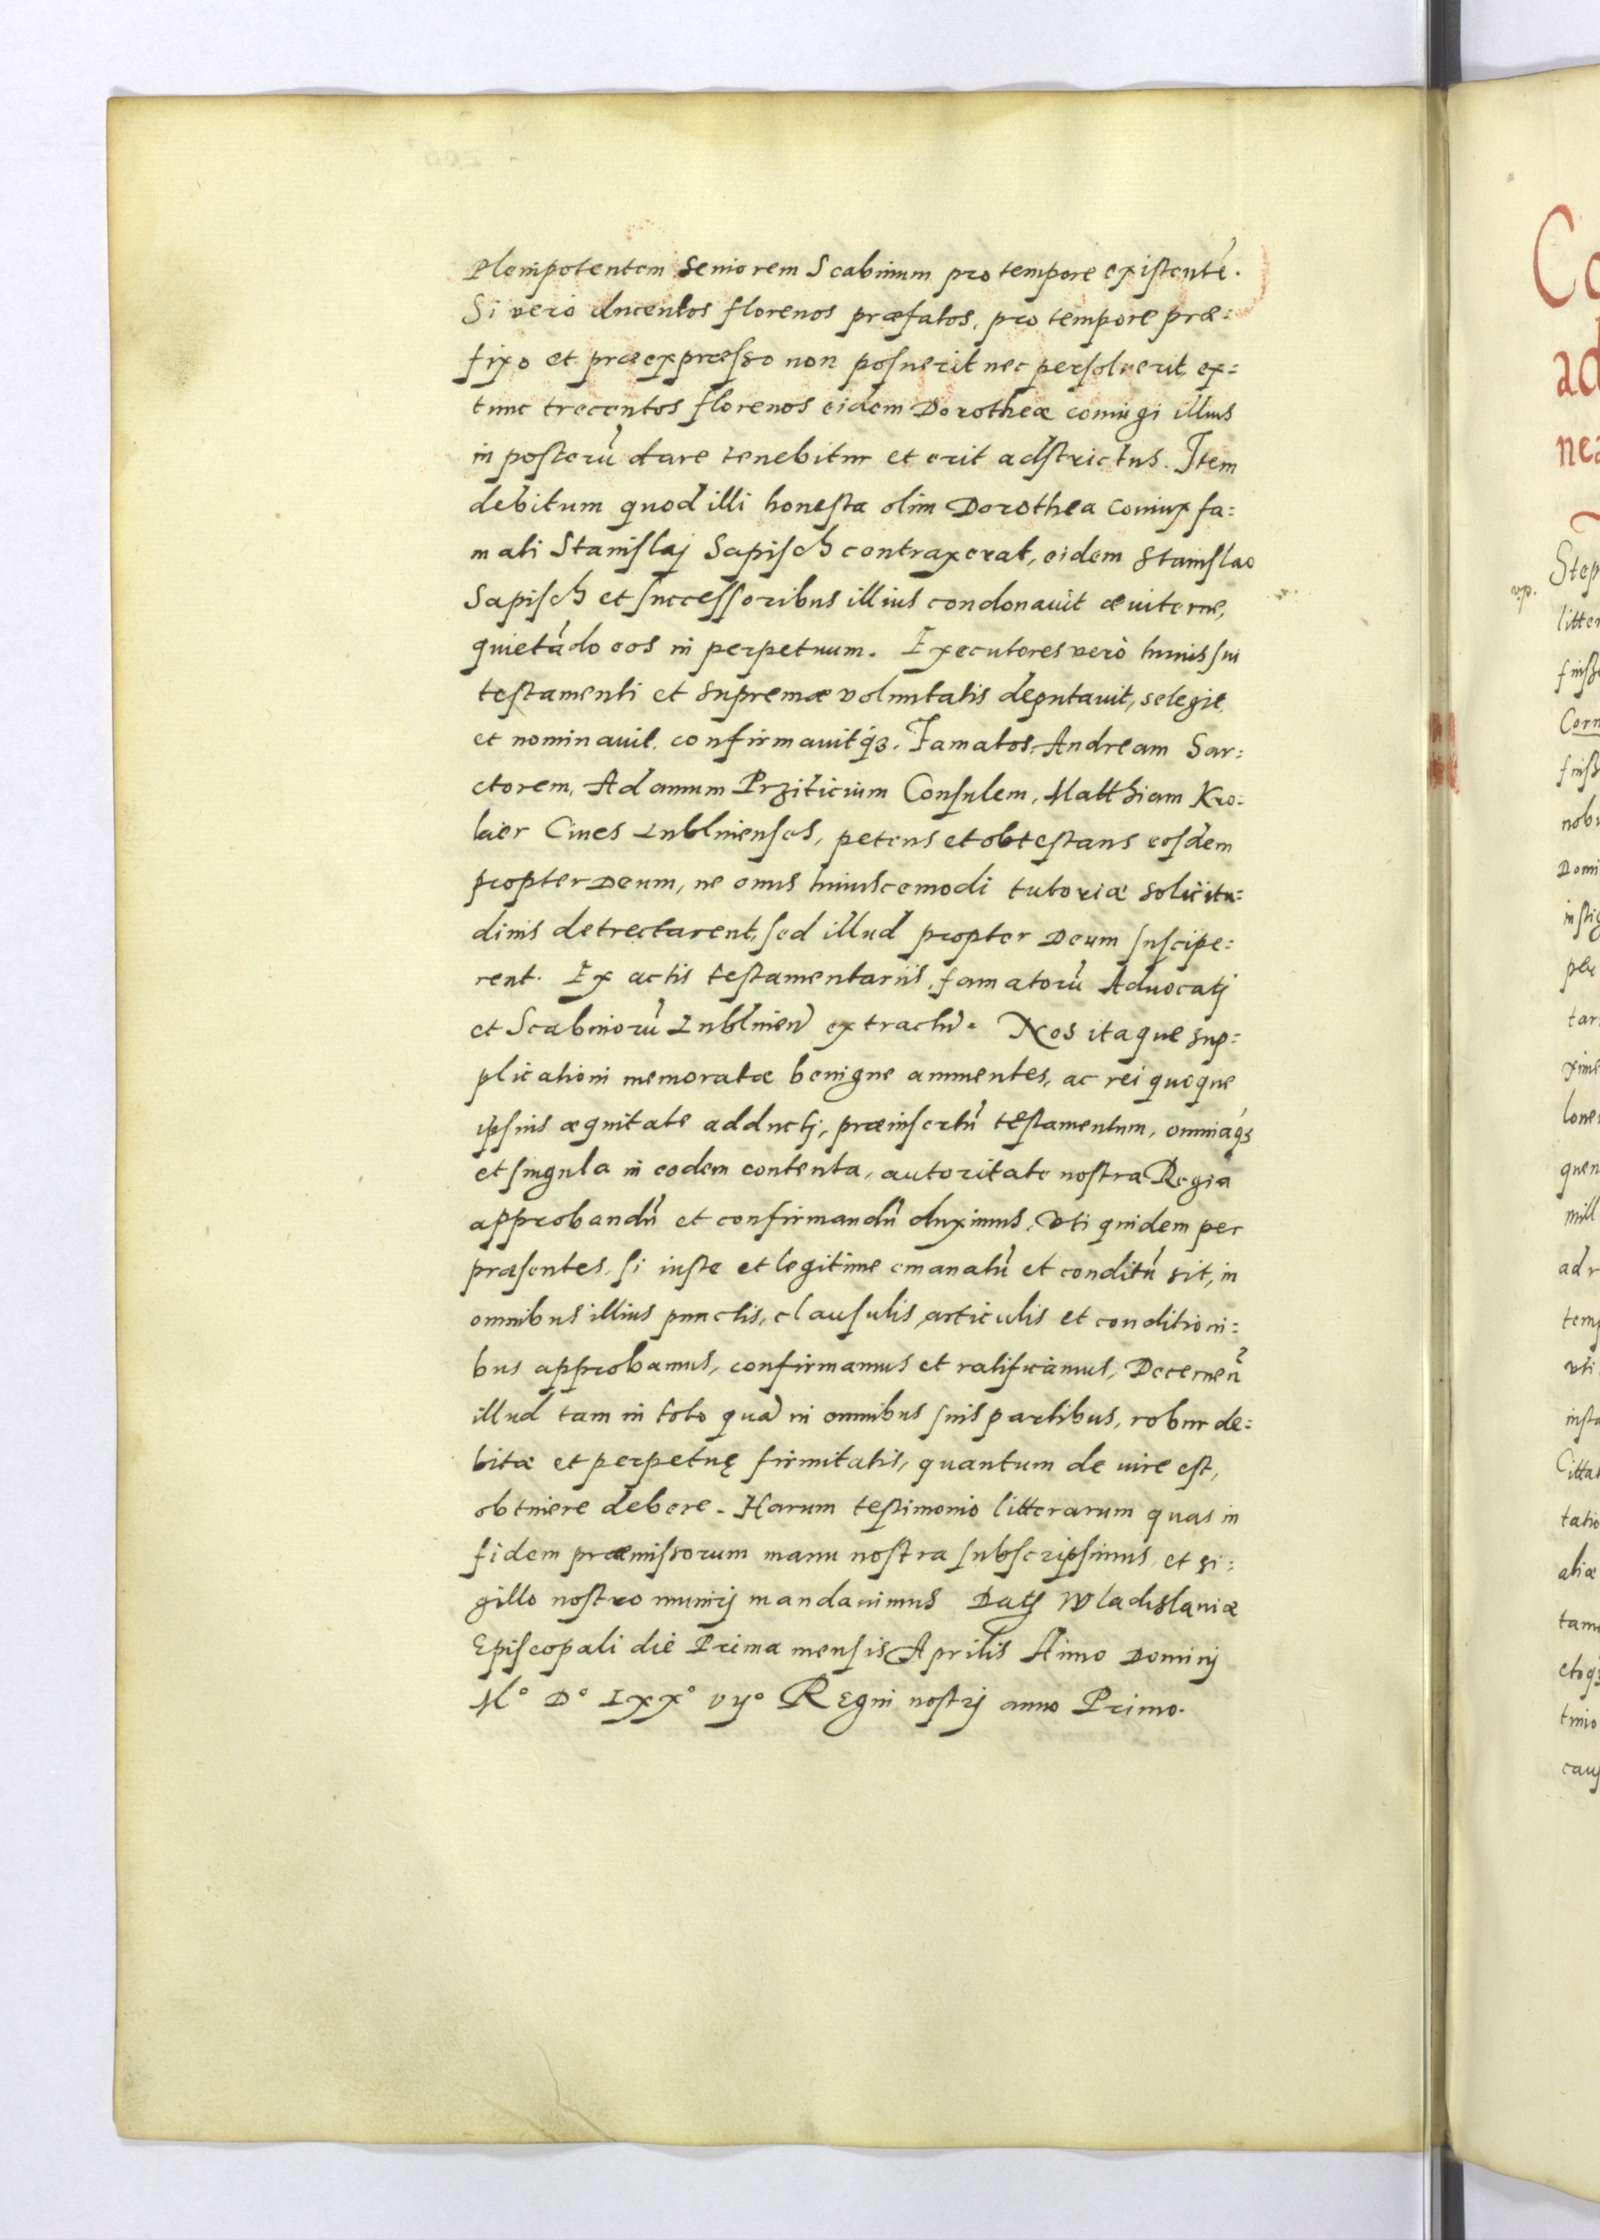 Plenipotentem Seniorem Scabinum pro tempore existentē.
Si vero ducentos florenos præfatos, pro tempore præ=
fixo et præexpræsso non posuerit nec persoluerit, ex=
tunc trecentos florenos eidem Dorotheæ coniugi illius
in posterū dare tenebitur et erit adstrictus. Item
debitum quod illi honesta olim Dorothea Coniux fa=
mati Stanislaj Sapisch contraxerat, eidem Stanislao
Sapisch et successoribus illius condonauit æuiterne,
quietādo eos in perpetuum. Executores verò huius sui
testamenti et supremæ voluntatis deputauit, selegit,
et nominauit, confirmauitq3. Famatos, Andream Sar=
ctorem, Adamum Prziticium Consulem, Matthiam Kro=
laier Ciues Lublinenses, petens et obtestans eosdem
propter Deum, ne onus huiuscemodi tutoriæ solicitu=
dinis detrectarent, sed illud propter Deum suscipe=
rent. Ex actis testamentariis, famatorū Aduocatj
et Scabinorū Lublineñ extractū. Nos itaque sup=
plicationi memoratæ benigne annuentes, ac rei quoque
ipsius æquitate adductj, præinsertū testamentum, omniaq3
et singula in eodem contenta, autoritate nostra Regia
approbandū et confirmandū duximus, Vti quidem per
præsentes, si iuste et legitime emanatū et conditū sit, in
omnibus illius punctis, clausulis, articulis et conditioni=
bus approbamus, confirmamus et ratificamus, Decerneñ
illud tam in toto quā in omnibus suis partibus, robur de=
bitæ et perpetuę firmitatis, quantum de iure est,
obtinere debere. Harum testimonio litterarum quas in
fidem præmissorum manu nostra subscripsimus, et si=
gillo nostro munirj mandauimus Datj Wladislauiæ
Episcopali die Prima mensis Aprilis Anno Dominj
M° D° Lxx° vij° Regni nostrj anno Primo.
Co
ad
nea
Step
vp.
litter
Corn
nobi
Domi
instig
per
tar
lone
quen
mill
ad r
temp
vti
insta
Cittat
tatio
aliæ
tam
etoq3
caus